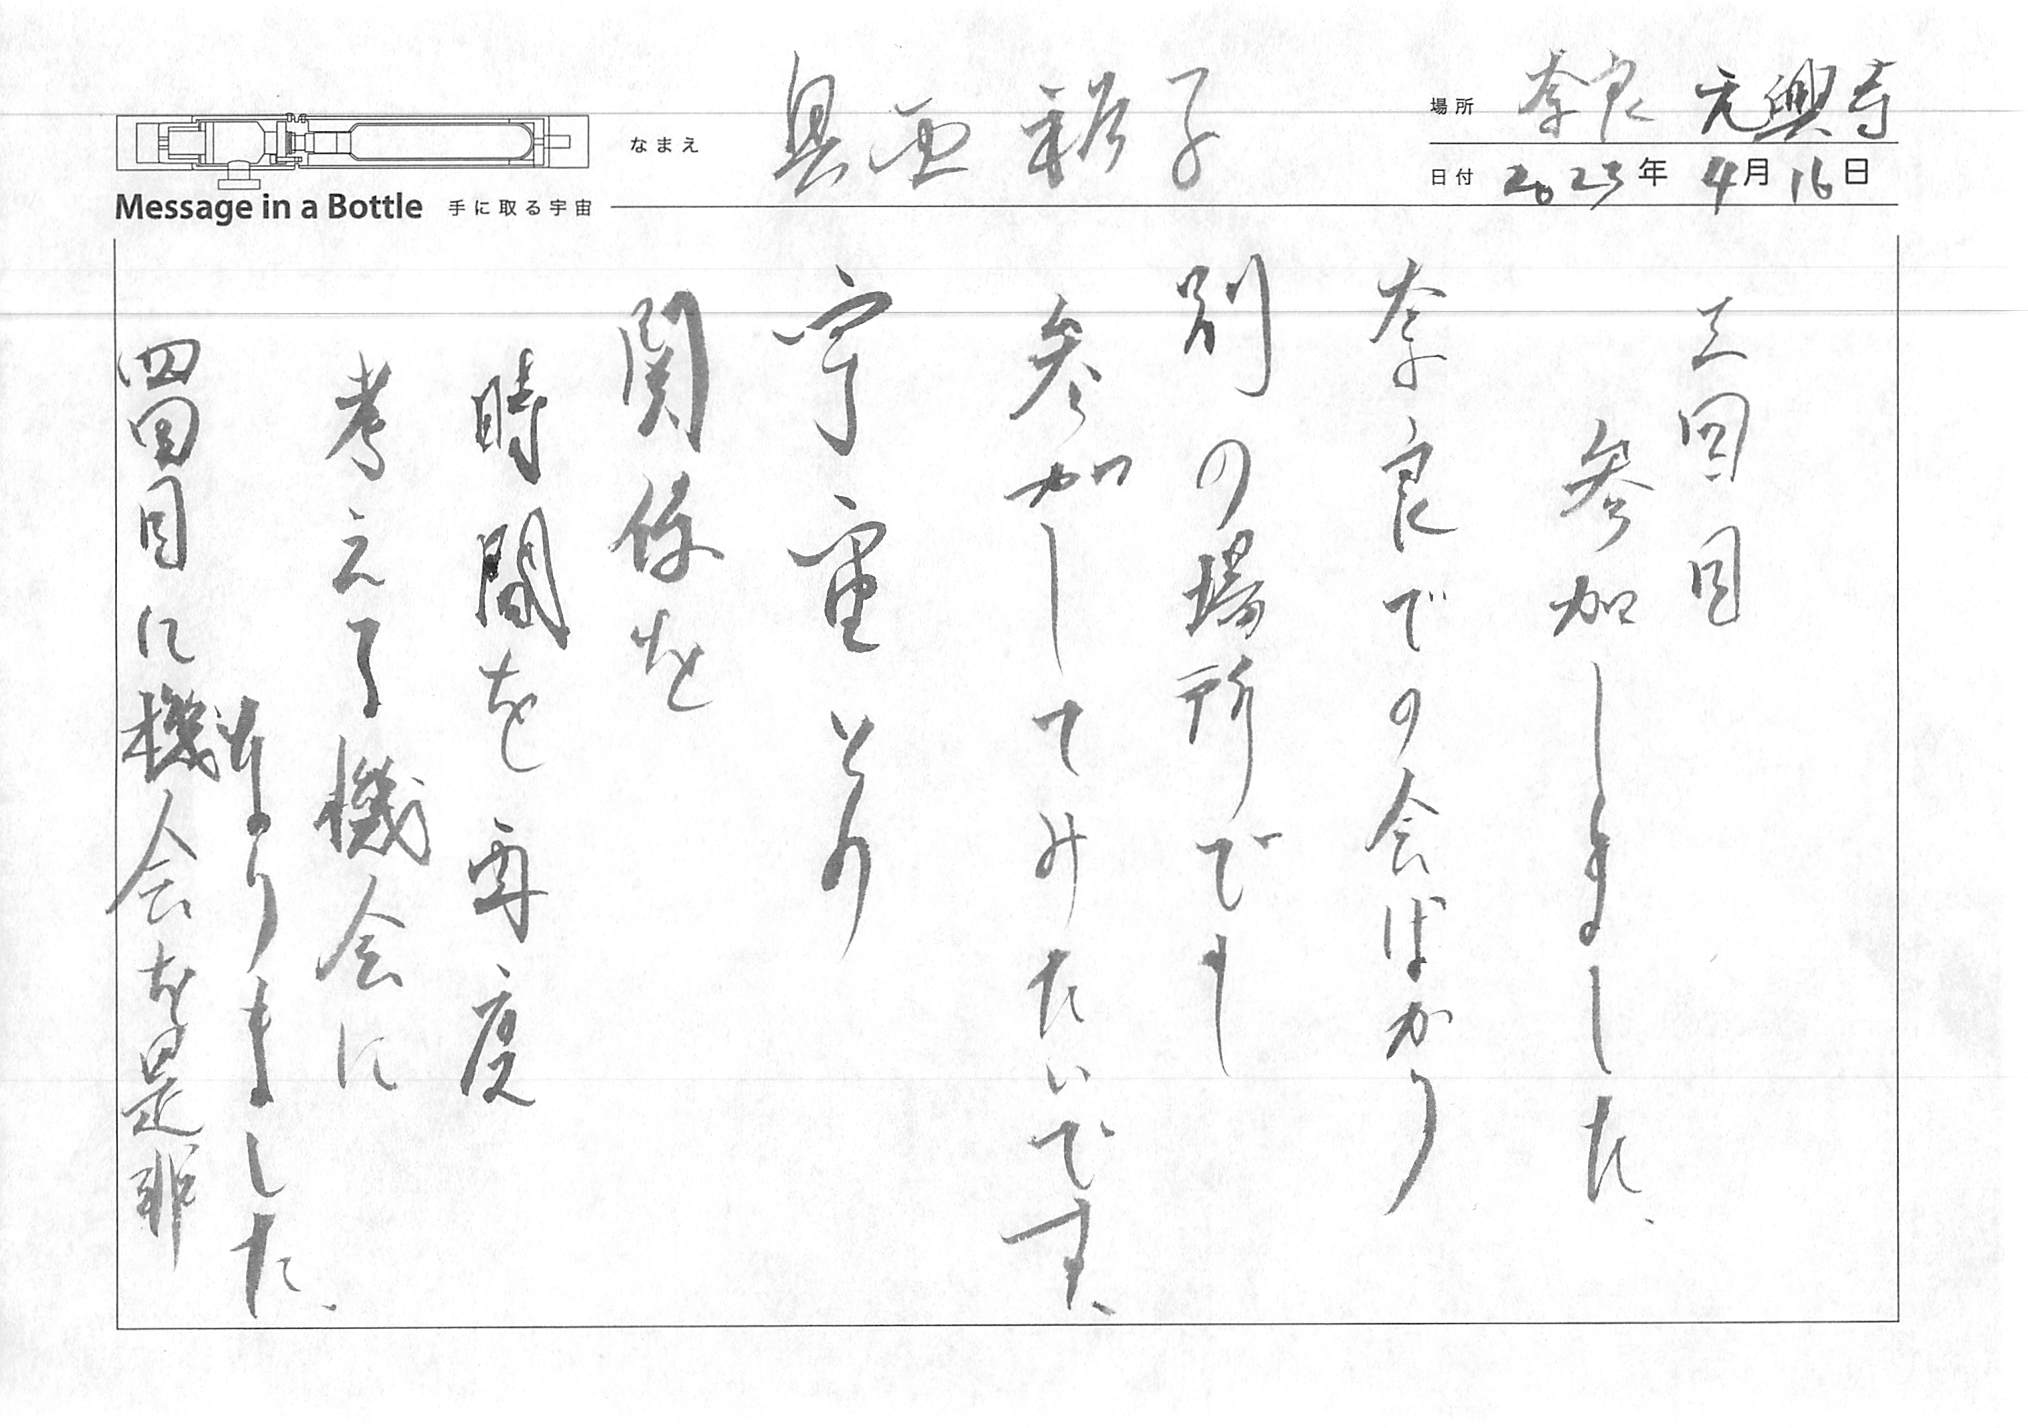 Message in a Bottle 手に取る宇宙
なまえ 裕子
場所 奈良 元興寺
日付 2023年 4月16日
三回目
参加しました、
奈良での会ばかり
別の場所でも
参加してみたいです、
宇宙との
関係を
時間を再度
考える機会に
なりました、
四回目に機会を是非